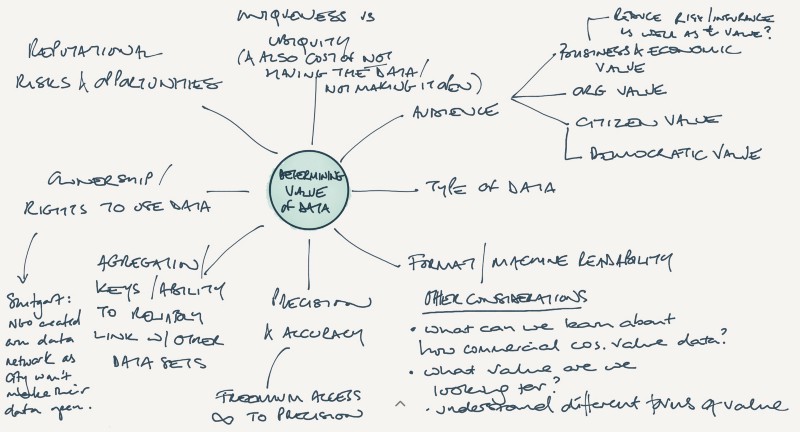 REPUTATIONAL
RISKS & OPPORTUNITIES
UNIQUENESS VS
UBIQUITY
(& ALSO COST OF NOT
HAVING THE DATA/
NOT MAKING IT OPEN)
AUDIENCE
REDUCE RISK/INSURANCE
IS WELL AS £ VALUE?
BUSINESS & ECONOMIC
VALUE
ORG VALUE
CITIZEN VALUE
DEMOCRATIC VALUE
DETERMINING
VALUE
OF DATA
TYPE OF DATA
OWNERSHIP/
RIGHTS TO USE DATA
Stuttgart:
NGO created
own data
network as
city won't
make their
data open.
AGGREGATION/
KEYS/ABILITY
TO RELIABLY
LINK W/ OTHER
DATA SETS
PRECISION
& ACCURACY
FREEMIUM ACCESS
∞ TO PRECISION
FORMAT/MACHINE READABILITY
OTHER CONSIDERATIONS
• what can we learn about
how commercial cos. value data?
• what value are we
looking for?
• understand different forms of value